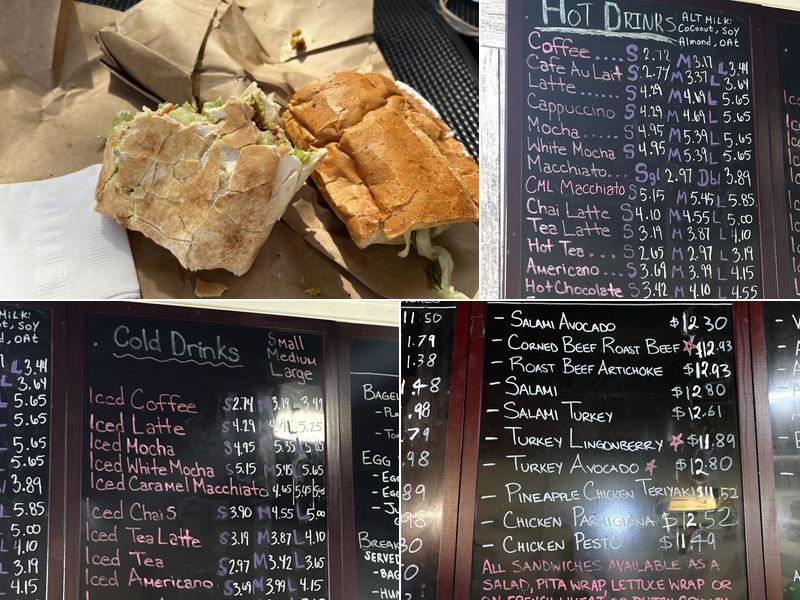 HOT DRINKS
ALT MILK:
COCONUT, SOY
Almond, OAt
Coffee.... S 2.72 M 3.17 L 3.44
Cafe Au Lait S 2.74 M 3.37 L 3.64
Latte..... S 4.29 M 4.69 L 5.65
Cappuccino S 4.29 M 4.69 L 5.65
Mocha..... S 4.95 M 5.39 L 5.65
White Mocha S 4.95 M 5.39 L 5.65
Macchiato... Sgl 2.97 Dbl 3.89
CML Macchiato S 5.15 M 5.45 L 5.85
Chai Latte S 4.10 M 4.55 L 5.00
Tea Latte S 3.19 M 3.87 L 4.10
Hot Tea... S 2.65 M 2.97 L 3.19
Americano... S 3.69 M 3.99 L 4.15
Hot Chocolate S 3.42 M 4.10 L 4.55
MILK:
SOY
OAt
L 3.44
L 3.64
5.65
5.65
5.65
5.65
3.89
5.85
5.00
4.10
3.19
4.15
Cold Drinks
Small
Medium
Large
Iced Coffee S 2.74 M 3.19 L 3.41
Iced Latte S 4.29 L 5.25
Iced Mocha S 4.95 M 5.35 5.65
Iced White Mocha S 5.15 M 5.45 5.65
Iced Caramel Macchiato 4.65
Iced Chai S 3.90 M 4.55 L 5.00
Iced Tea Latte S 3.19 M 3.87 L 4.10
Iced Tea S 2.97 M 3.42 L 3.65
Iced Americano S 3.69 M 3.99 L 4.15
BAGEL
EGG
SERVED
- BAG
11.50
1.79
1.38
.98
.98
- SALAMI AVOCADO $12.30
- CORNED BEEF ROAST BEEF $12.93
- ROAST BEEF ARTICHOKE $12.93
- SALAMI $12.80
- SALAMI TURKEY $12.61
- TURKEY LINGONBERRY $11.89
- TURKEY AVOCADO $12.80
- PINEAPPLE CHICKEN TERIYAKI $11.52
- CHICKEN PARMIGIANA $12.52
- CHICKEN PESTO $11.49
ALL SANDWICHES AVAILABLE AS A
SALAD, PITA WRAP, LETTUCE WRAP OR